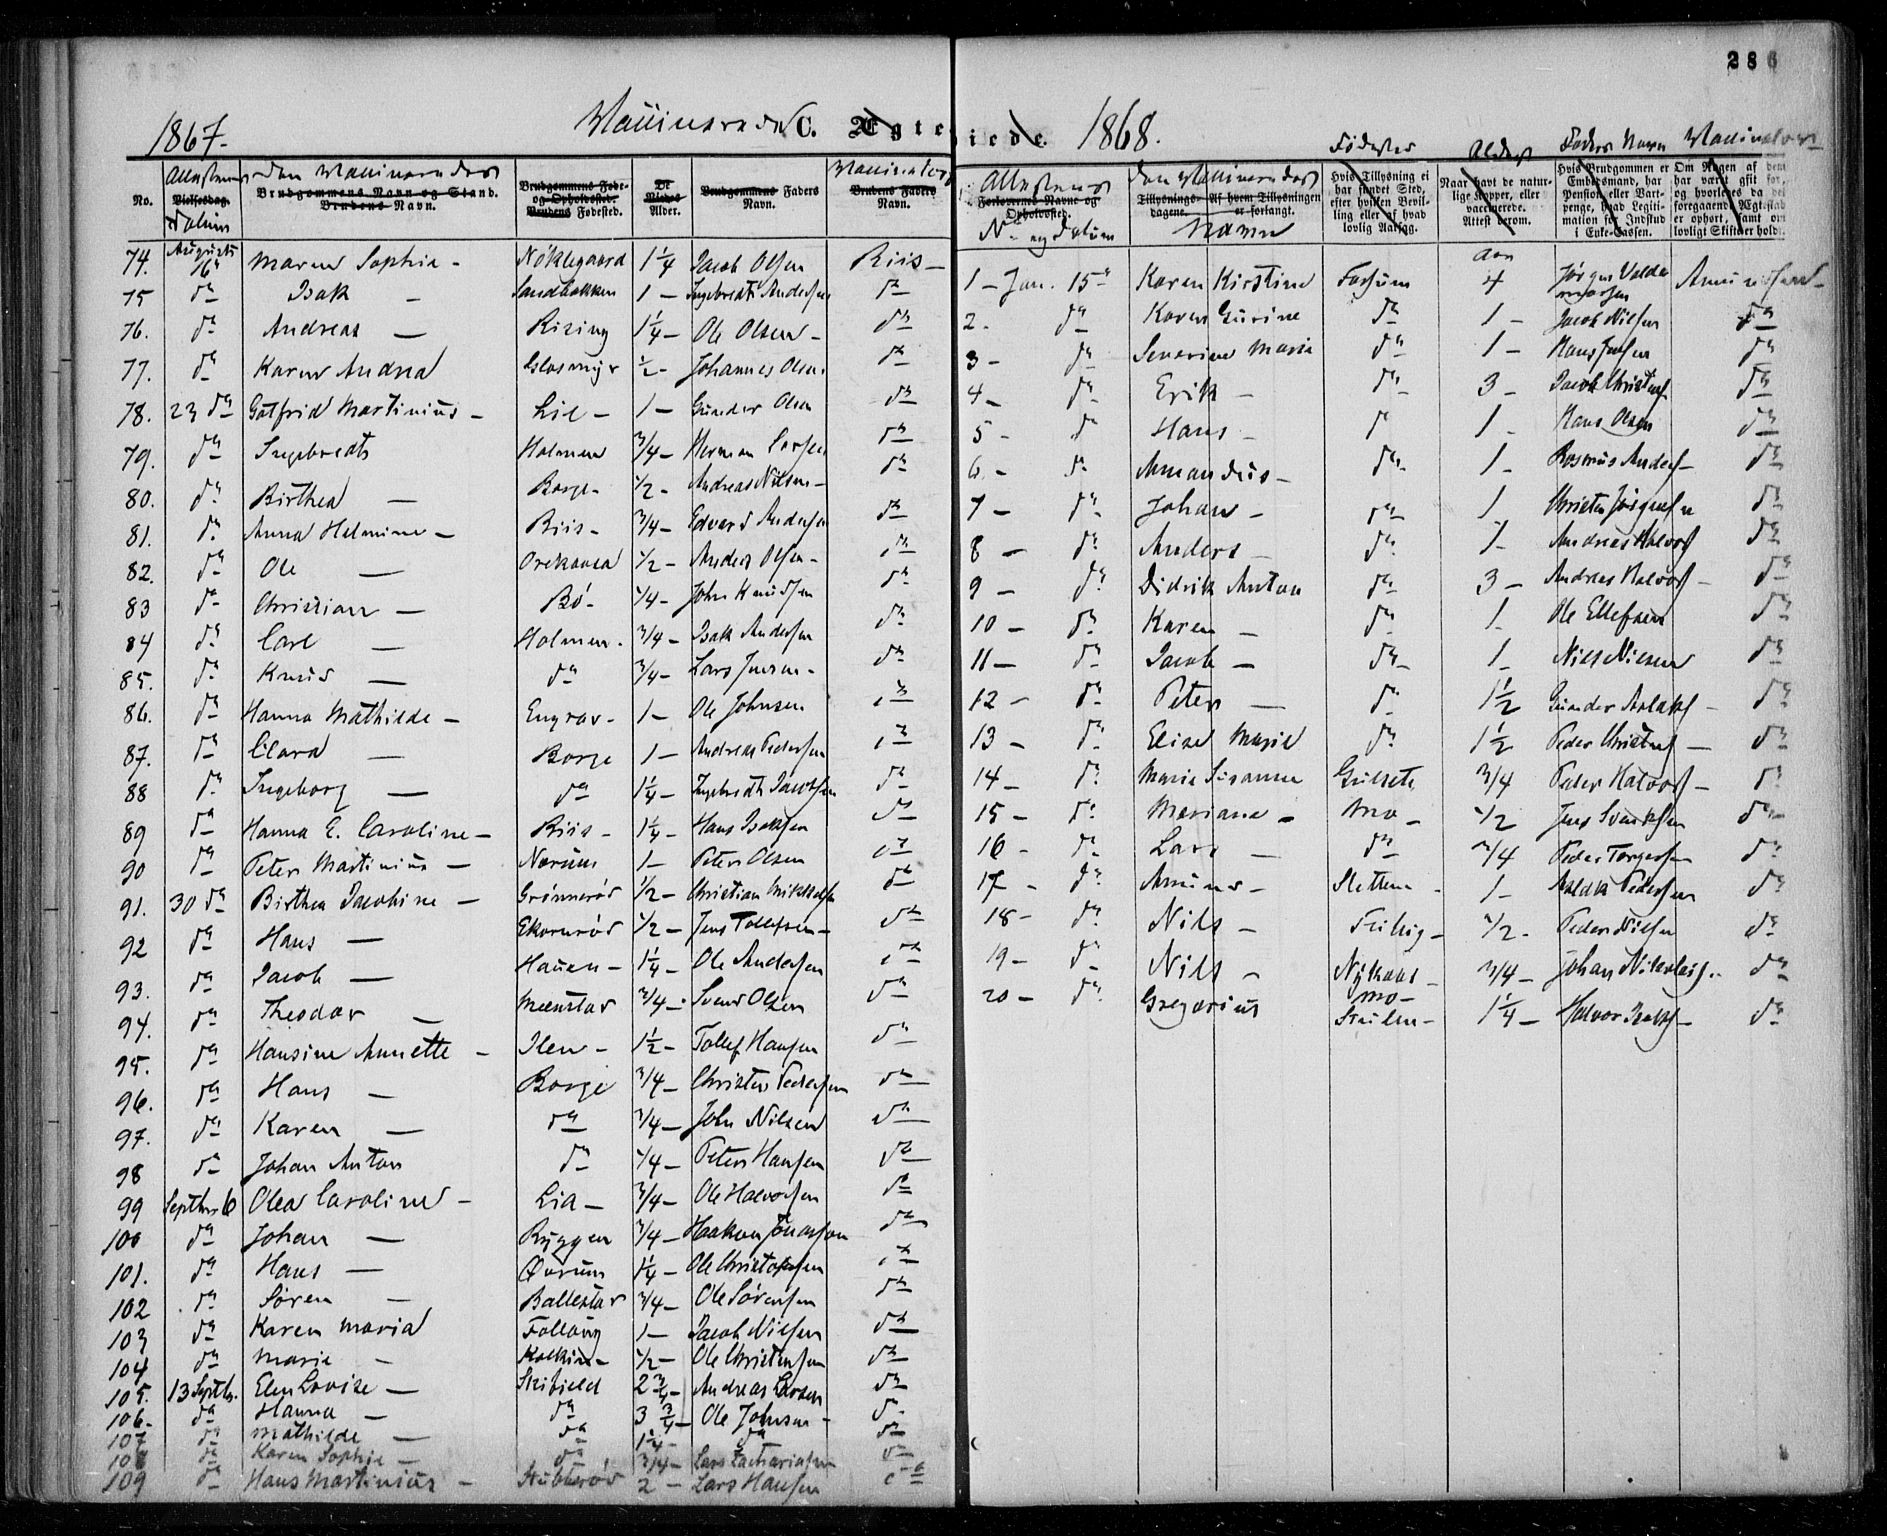 286
1867.
Vaccinerede C. Ægte
No.
Attestens Datum
Vielsesdag.
Den Vaccineredes
Brudgommens Navn og Stand.
Brudens Navn.
Brudgommens Føde-
og Opholdssted.
Brudens Fødested.
Alder.
Brudgommens Faders
Navn.
Vaccinator
Brudens Faders
Navn.
74. August 16 Maren Sophie - Nöklegaard 1 1/4 Jacob Olsen Riis -
75 do Isak - Sandbakken 1 - Ingebredt Andersen do
76. do Andreas - Rising 1 1/4 - Ole Olsen - do
77. do Karen Andrea 1/2 - Johannes Olsen do
78. 23 do Gotfrid Martinius - Lie - 1 - Gunder Olsen do
79. do Ingebredt Holmen 3/4 - Herman Larsen do
80. do Birthea - Borge - 1/2 - Andreas Nilsen - do
81. do Anna Helmine - Riis - 3/4 - Edvard Andersen do
82. do Ole - 1/2 - Anders Olsen - do
83 do Christian - Bö - 1/4 - John Knudsen do
84 do Carl - Holmen - 3/4 - Isak Andersen do
85. do Knud - do 3/4 - Lars Jensen - do
86. do Hanna Mathilde - Engrav - 1 - Ole Johnsen do
87. do Clara - Borge 1 - Andreas Pedersen do
88 do Ingeborg - do 1 1/4 - Ingebredt Jacobsen do
89 do Hanna E. Caroline - Riis - 1 1/4 - Hans Isaksen do
90 do Peter Martinius - Nærum 1 - Peter Olsen do
91. 30 do Birthea Jacobine - Grönnerød 1/2 - Christian Mikkelsen do
92 do Hans - Ekornrød 1/2 - Jens Tollefsen - do
93. do Jacob - Hauen - 1 1/4 - Ole Andersen do
94. do Theodor - Meenstad 3/4 - Svend Olsen do
95. do Hansine Annette - Ilen - 1 1/2 - Tollef Hansen do
96. do Hans - Borge 3/4 - Christen Pedersen do
97. do Karen - do 3/4 - John Nilsen do
98 do Johan Anton do 1/4 - Peter Hansen do
99 Septbr 6 Olea Caroline - Lia - 3/4 - Ole Halvorsen do
100 do Johan - Ryggen 3/4 - Haakon Jonassen do
101. do Hans - Øvrum 1 1/4 - Ole Christophersen do
102 do Sören - Ballestad 3/4 - Ole Sørensen do
103 do Karen Maria Follaug 1 - Jacob Nilsen do
104 do Marie - 1/2 - Ole Christensen do
105. 13 Septbr. Elen Lovise - Skifjeld 2 3/4 - Andreas Larsen do
106. do Hanna - do 3 3/4 - Ole Johnsen - do
107 do Mathilde - do 1 1/4 - do do
108 do Karen Sophie - do 3/4 - Lars Zachariasen do
109 do Hans Martinius - Stubberød 2 - Lars Hansen do
iede. 1868.
Attestens
No og Datum
Forlovernes Navne og
Opholdssted.
Den Vaccineredes
Navn
Tillysnings-
dagene.
Af hvem Tillysningen
er forlangt.
Fødested
Hvis Tillysning ei
har fundet Sted,
efter hvilken Bevil-
ling eller af hvad
lovlig Aarsag.
Alder
Naar havt de natur-
lige Kopper, eller
vaccinerede.
Attest derom.
Faders Navn
Hvis Brudgommen er
Embedsmand, har
Pension eller Vart-
penge, hvad Legiti-
mation for Indskud
i Enke-Cassen.
Vaccinator
Om Nogen af dem
har været gift før,
og hvorledes da det
foregaaende Ægteskab
er ophørt, samt om
lovligt Skifte er holdt.
Aar
1 - Jan. 15de Karen Kirstine Fossum 4 Jørgen Valde
marsen Amundsen -
2. do Karen Gurine do 1 - Jacob Nilsen do
3 - do Severine Marie do 1 - Hans Jensen do
4 - do Erik - do 3 - Jacob Christens. do
5 - do Hans - do 1 - Hans Olsen do
6 - do Amandus - do 1 - Rasmus Anders. - do
7 - do Johan - do 1 Christen Jörgensen do
8 - do Anders - do 1 - Andreas Halvors. do
9 - do Didrik Anton do 3 - Andreas Halvors. - do
10 - do Karen - do 1 - Ole Ellefsen do
11 - do Jacob - do 1 - Nils Nilsen do
12 - do Peter - do 1 1/2 Gunder Aslaks. - do
13 - do Elise Marie do 1 1/2 Peder Christens. - do
14 - do Marie Susanne Gulset 3/4 Peder Halvors. - do
15 - do Mariane - Mo - 1/2 Jens Svendsen do
16 - do Lars - do 3/4 Peder Torgersen do
17 - do Amund - Sletten - 1 - Aslak Pedersen do
18 - do Nils - 1/2 - Peder Nilsen do
19 - do Nils - Nykaas - 3/4 - Johan Nikolais. - do
20 - do Gregorius Mo - 1 1/4 - Halvor Isaks. - do